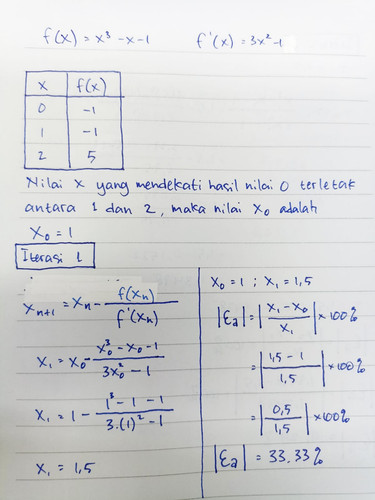 f(x) = x³ - x - 1 f'(x) = 3x² - 1
x f(x)
0 -1
1 -1
2 5
Nilai x yang mendekati hasil nilai 0 terletak
antara 1 dan 2, maka nilai x₀ adalah
x₀ = 1
Iterasi 1
xₙ₊₁ = xₙ - f(xₙ) / f'(xₙ)
x₁ = x₀ - x₀³ - x₀ - 1 / 3x₀² - 1
x₁ = 1 - 1³ - 1 - 1 / 3.(1)² - 1
x₁ = 1,5
x₀ = 1 ; x₁ = 1,5
|εa| = |x₁ - x₀ / x₁| × 100%
= |1,5 - 1 / 1,5| × 100%
= |0,5 / 1,5| × 100%
|εa| = 33.33%